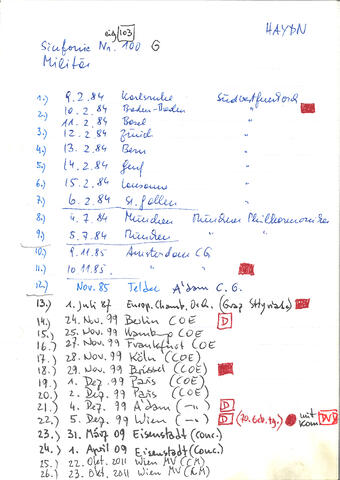 103
HAYDN
Sinfonie Nr. 100 G
Militär
1.) 9.2.84 Karlsruhe Südwestfunkorch
2.) 10.2.84 Baden-Baden "
11.2.84 Basel "
3.) 12.2.84 Zürich "
4.) 13.2.84 Bern "
5.) 14.2.84 Genf "
6.) 15.2.84 Lausanne "
7.) 6.2.84 St. Gallen "
8.) 4.7.84 München Münchner Philharmoniker
9.) 5.7.84 München " "
10.) 9.11.85 Amsterdam CG
11.) 10.11.85. " "
12.) Nov. 85 Teldec A'dam C.G.
13.) 1. Juli 87 Europ. Chamb. Orch. (Graz Styriarte)
14.) 24. Nov. 99 Berlin COE D
15.) 25. Nov. 99 Hamburg COE
16.) 27. Nov. 99 Frankfurt COE
17.) 28. Nov. 99 Köln (COE)
18.) 29. Nov. 99 Brüssel (COE)
19.) 1. Dez. 99 Paris (COE)
20.) 2. Dez. 99 Paris (COE)
21.) 4. Dez. 99 A'dam (-"-) D
22.) 5. Dez. 99 Wien (-"-) D (70. Geb. tg.) mit Kom DVD
23.) 31. März 09 Eisenstadt (Conc.)
24.) 1. April 09 Eisenstadt (Conc.)
25.) 22. Okt. 2011 Wien MV (CM)
26.) 23. Okt. 2011 Wien MV (CM)